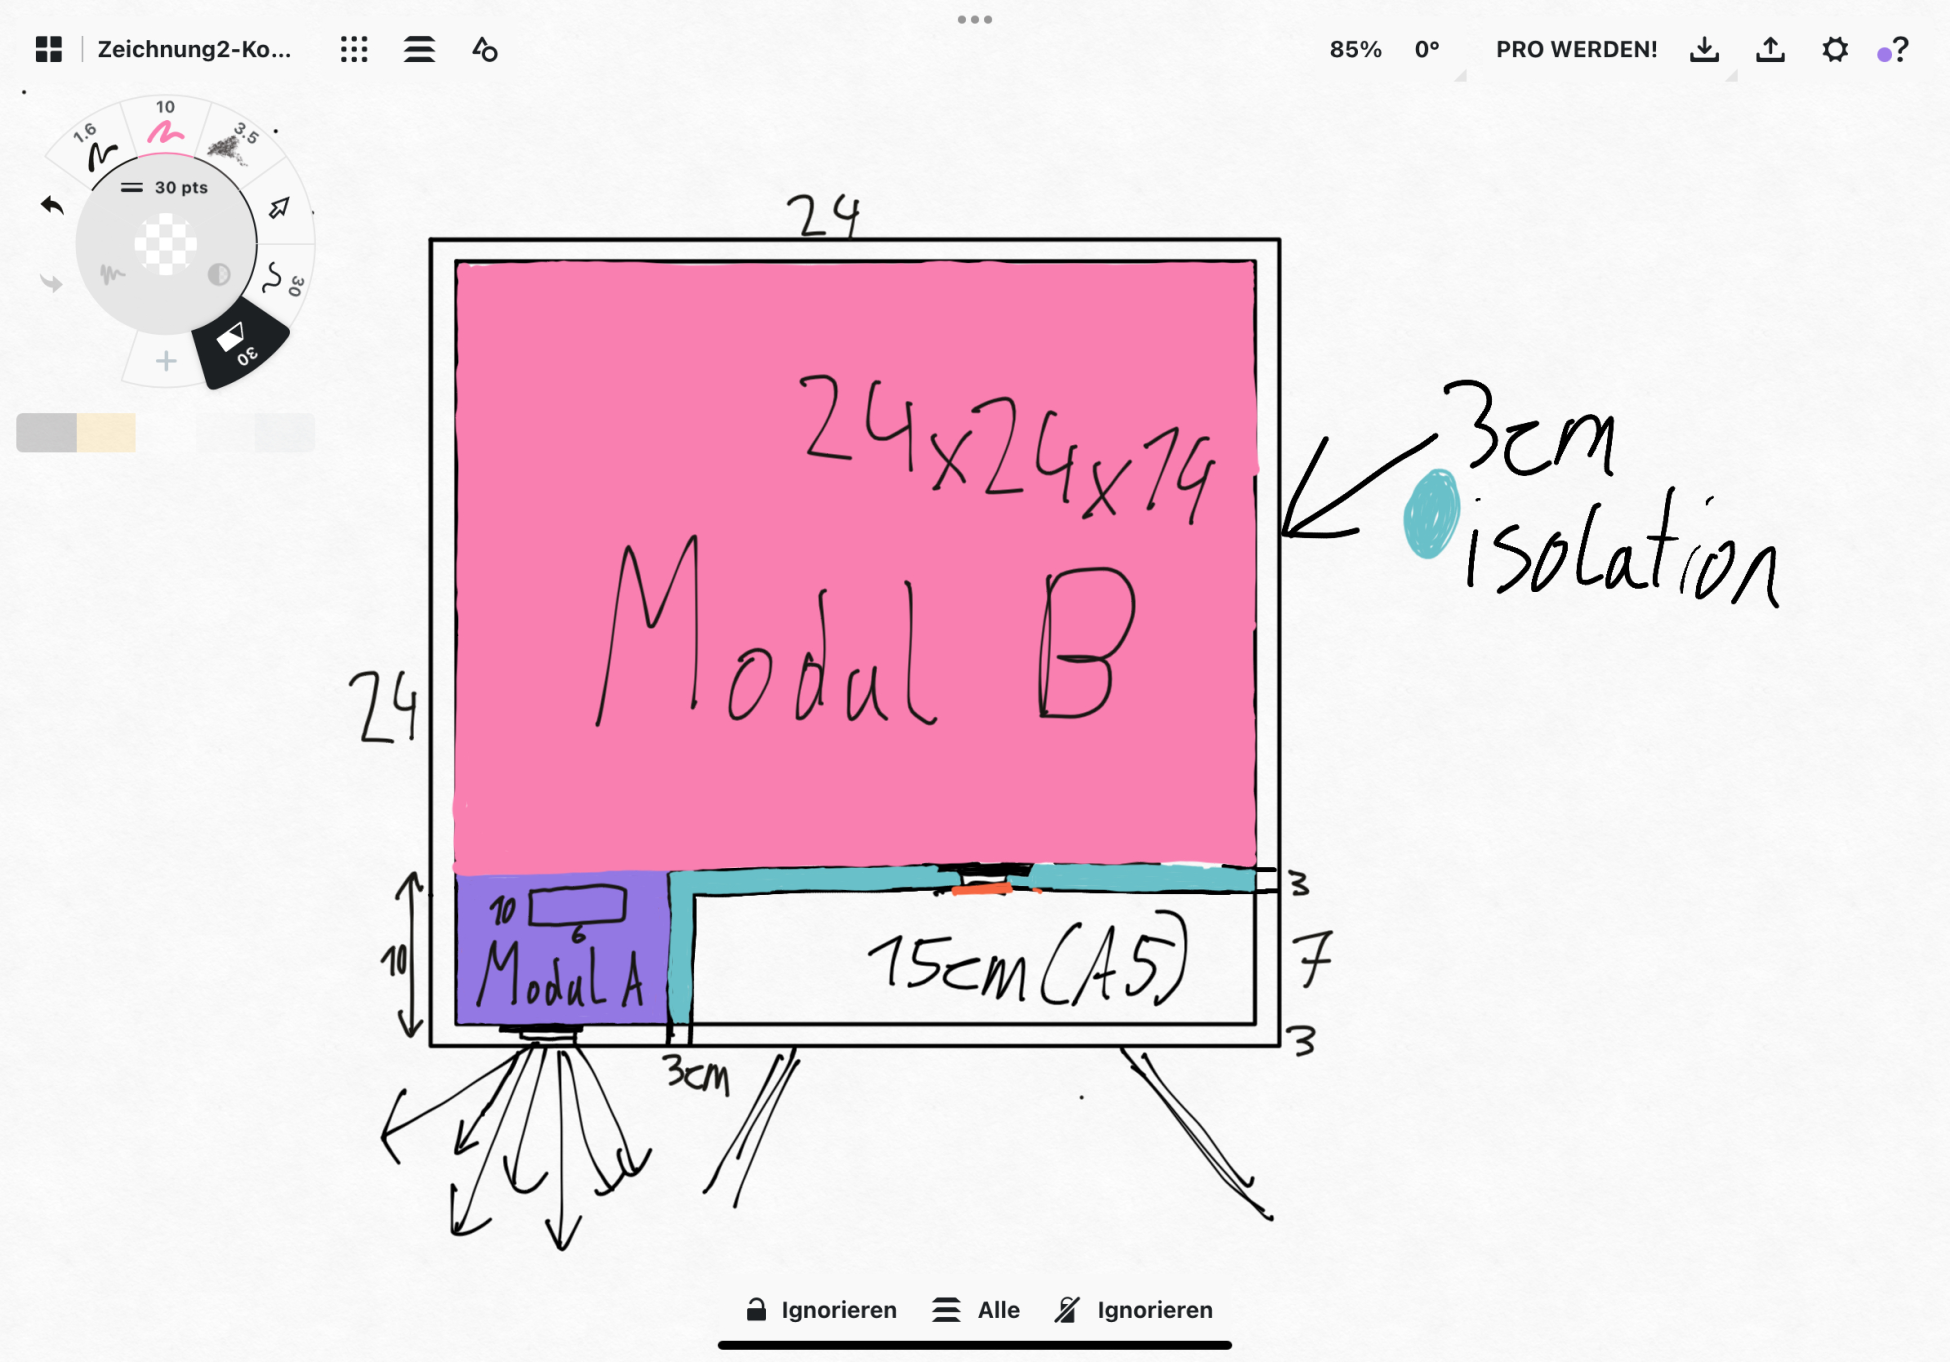 Zeichnung2-Ko...
85%
0°
PRO WERDEN!
?
10
1.6
3.5
30 pts
30
30
24
24x24x14
3cm
isolation
Modul B
24
10
10
6
Modul A
15cm (A5)
3
7
3
3cm
Ignorieren
Alle
Ignorieren